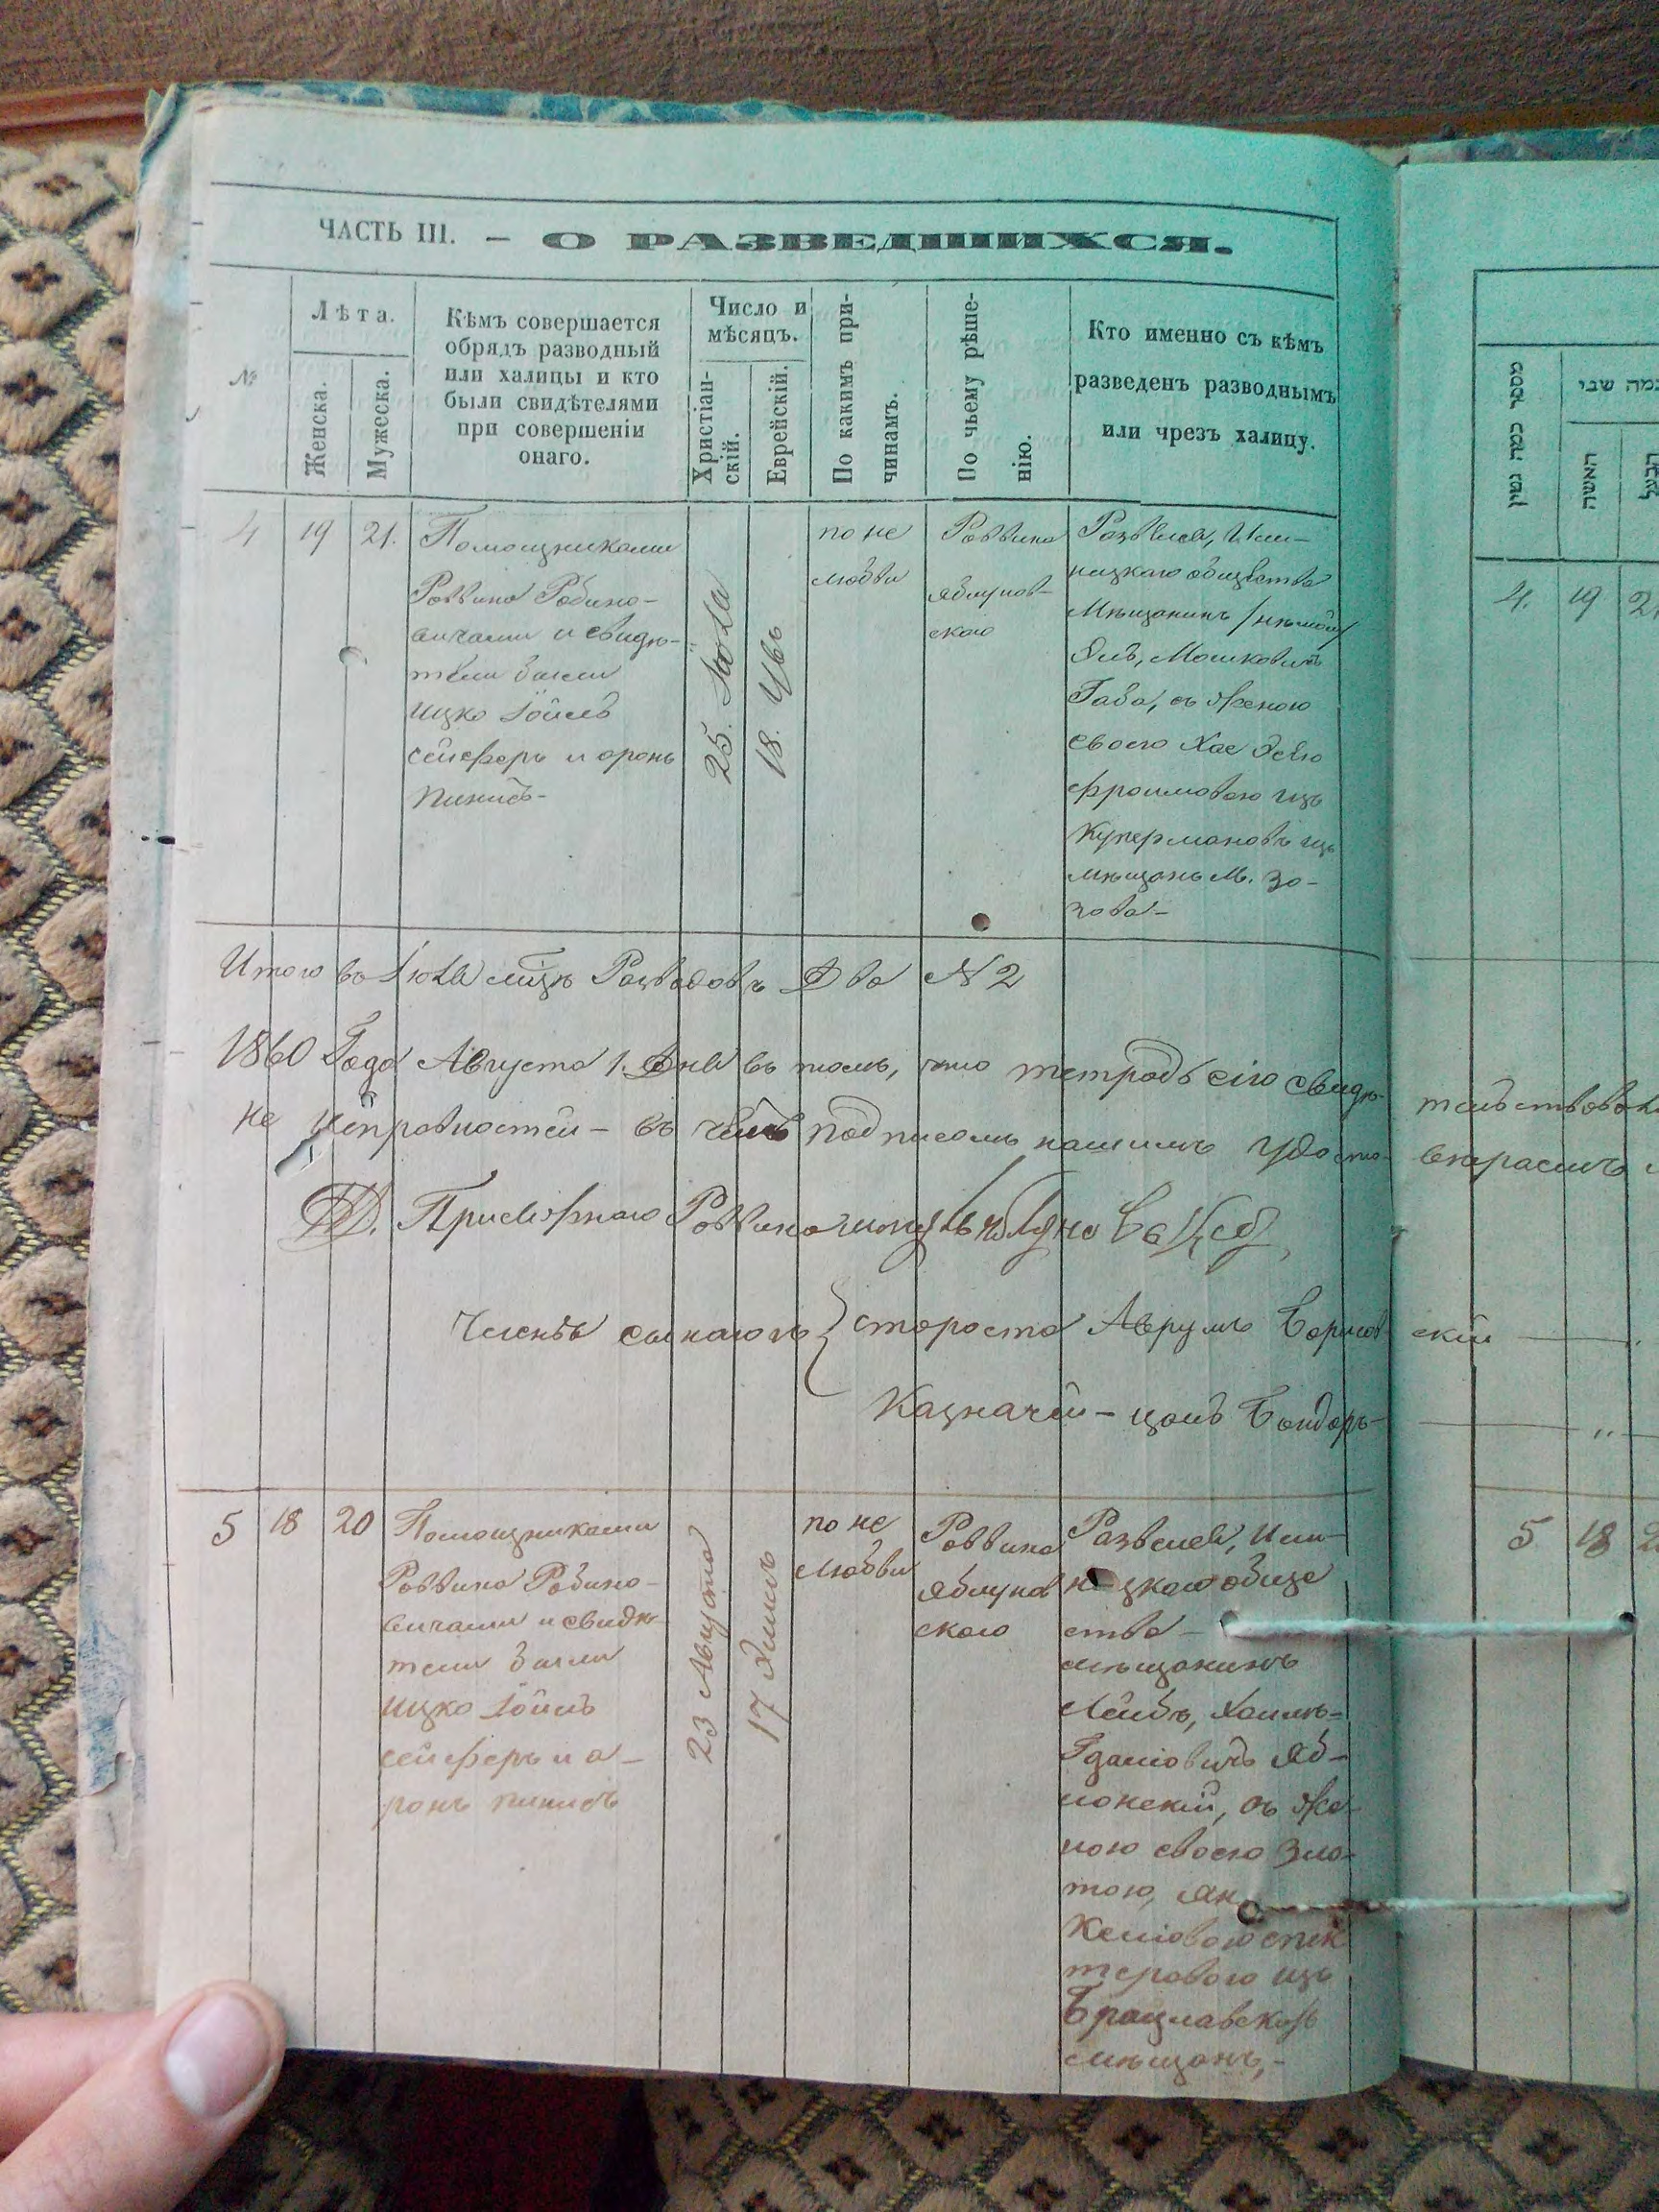 ЧАСТЬ III. — О РАЗВЕДШИХСЯ.
№
Лѣта.
Женска.
Мужеска.
Кѣмъ совершается
обрядъ разводный
или халицы и кто
были свидѣтелями
при совершеніи
онаго.
Число и
мѣсяцъ.
Христіан-
скій.
Еврейскій.
По какимъ при-
чинамъ.
По чьему рѣше-
нію.
Кто именно съ кѣмъ
разведенъ разводнымъ
или чрезъ халицу.
4
19
21.
Помощниками
Раввина Рабино-
вичами и свидѣ-
тели были
Ицко Іойль
сейферъ и аронъ
25. Іюля
18. Увъ
по не
любви
Раввина
яблунов-
скаго
Развелся, Или-
ницкаго общества
Мѣщанинъ /нѣмой/
Мошковичъ
Габа, съ женою
своею Хае
фроимовою изъ
Купермановъ изъ
мѣщанъ М. Зо-
зова —
Итого въ Іюлѣ мцѣ Разводовъ Два № 2
1860 Года Августа 1. Дня въ томъ, что тетрадь сію свидѣ-
тельствовали
не исправностей — въ чемъ подписомъ нашимъ удосто-
вѣряемъ
Раввина
Члены {староста Аврумъ
скій
Казначей —
5
18
20
Помощниками
Раввина Рабино-
вичами и свидѣ-
тели были
Ицко Іойль
сейферъ и а-
ронъ
23 Августа
17 Элиль
по не
любви
Раввина
яблунов
скаго
Развелся, Или-
ницкаго обще
ства —
мѣщанинъ
Лейбъ, Хаимъ-
Гдаліовичъ Яб-
лонскій, съ же-
ною своею Зла-
тою, Ян
келіовою
теровою изъ
Брацлавскихъ
мѣщанъ, —
מספר כמה גטין
כמה שני
האשה
הבעל
4.
19
5
18